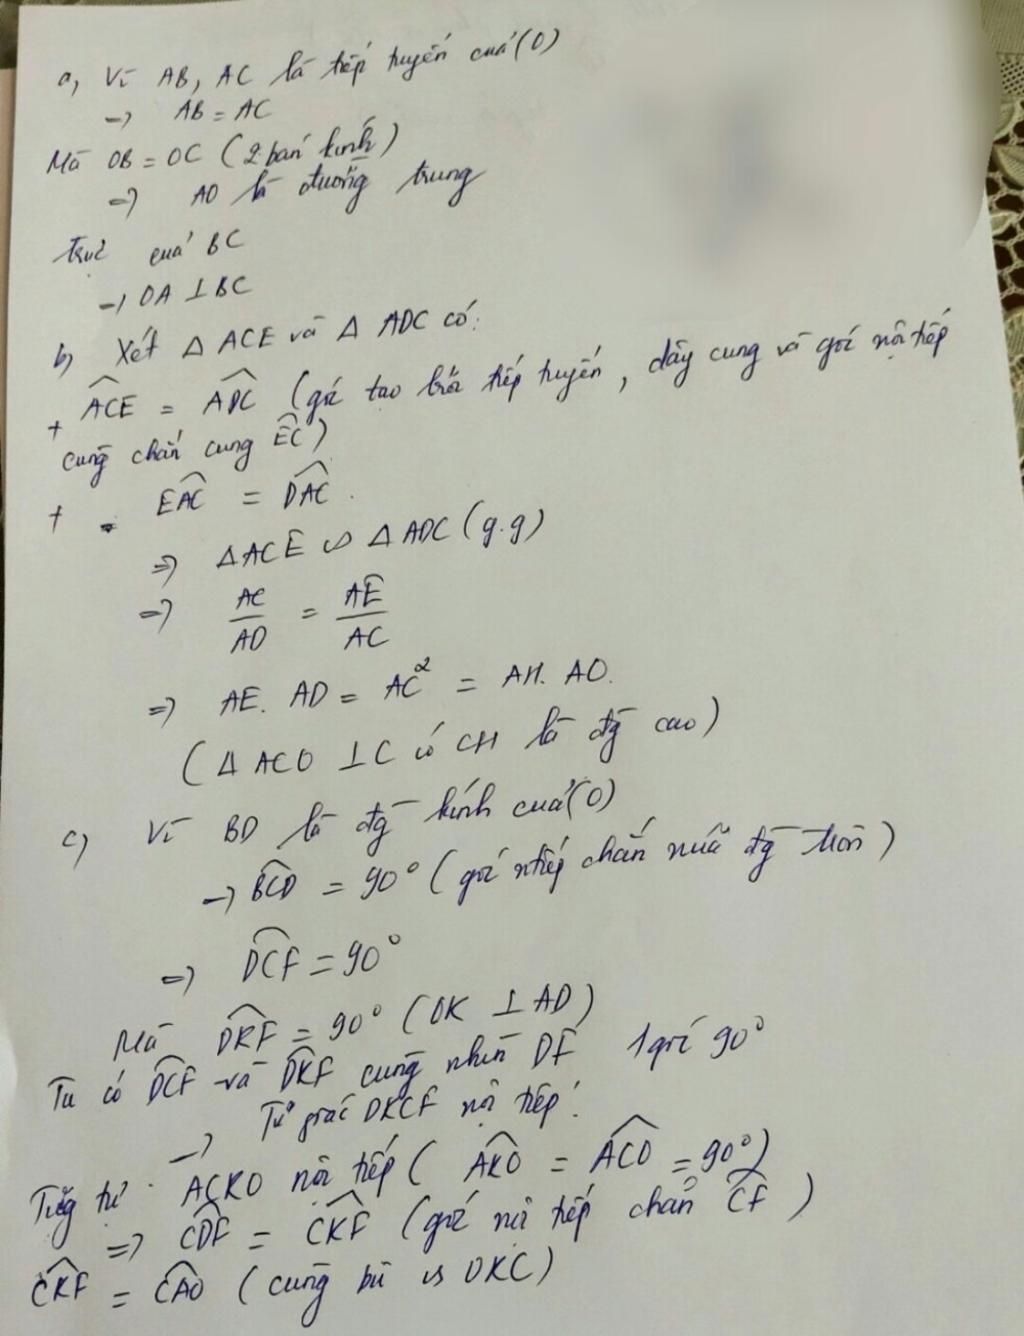 a, Vì AB, AC là tiếp tuyến của (O)
→ AB = AC
Mà OB = OC (2 bán kính)
⇒ AO là đường trung
trực của BC
→ OA ⊥ BC
b, Xét △ ACE và △ ADC có:
+ \widehat{ACE} = \widehat{ADC} (góc tạo bởi tiếp tuyến, dây cung và góc nội tiếp
cùng chắn cung \widehat{EC})
+ \widehat{EAC} = \widehat{DAC}.
⇒ △ACE ∽ △ADC (g.g)
⇒ \frac{AC}{AD} = \frac{AE}{AC}
⇒ AE. AD = AC² = AH. AO.
(△ ACO ⊥ C có CH là đg cao)
c) Vì BD là đg kính của (O)
→ \widehat{BCD} = 90° (góc ntiếp chắn nửa đg tròn)
⇒ \widehat{DCF} = 90°
Mà \widehat{DKF} = 90° (OK ⊥ AD)
Ta có \widehat{DCF} và \widehat{DKF} cùng nhìn DF 1 góc 90°
→ Tứ giác DKCF nội tiếp.
Tương tự ACKO nội tiếp (\widehat{AKO} = \widehat{ACO} = 90°)
⇒ \widehat{CDF} = \widehat{CKF} (góc nội tiếp chắn \widehat{CF})
\widehat{CKF} = \widehat{CAO} (cùng bù vs OKC)